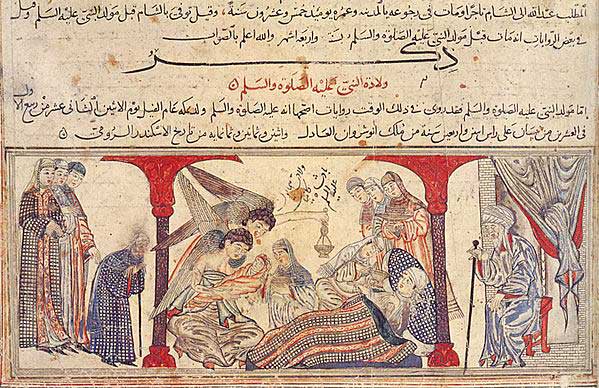 المطلب عبد الله الى الشام تاجرا ومات في رجوعه بالمدينه وعمره يوميذ خمس وعشرون سنة وقيل توفي بالشام قبل مولد النبي عليه السلم وقيل
في بعض الروايات انه مات قبل مولد النبي عليه الصلوة والسلم واربعة اشهر والله اعلم بالصواب
ذكر
ولادة النبي عليه الصلوة والسلم
اما مولد النبي عليه الصلوة والسلم فقد روى في ذلك الوقت روايات اصحها انه عليه الصلوة والسلم ولد بمكه عام الفيل يوم الاثنين الثاني عشر من ربيع الاول
في العشرين من نيسان على راس اثنين واربعين سنة من ملك انوشروان العادل واثنين وثمانين وثمانمايه من تاريخ الاسكندر الرومي